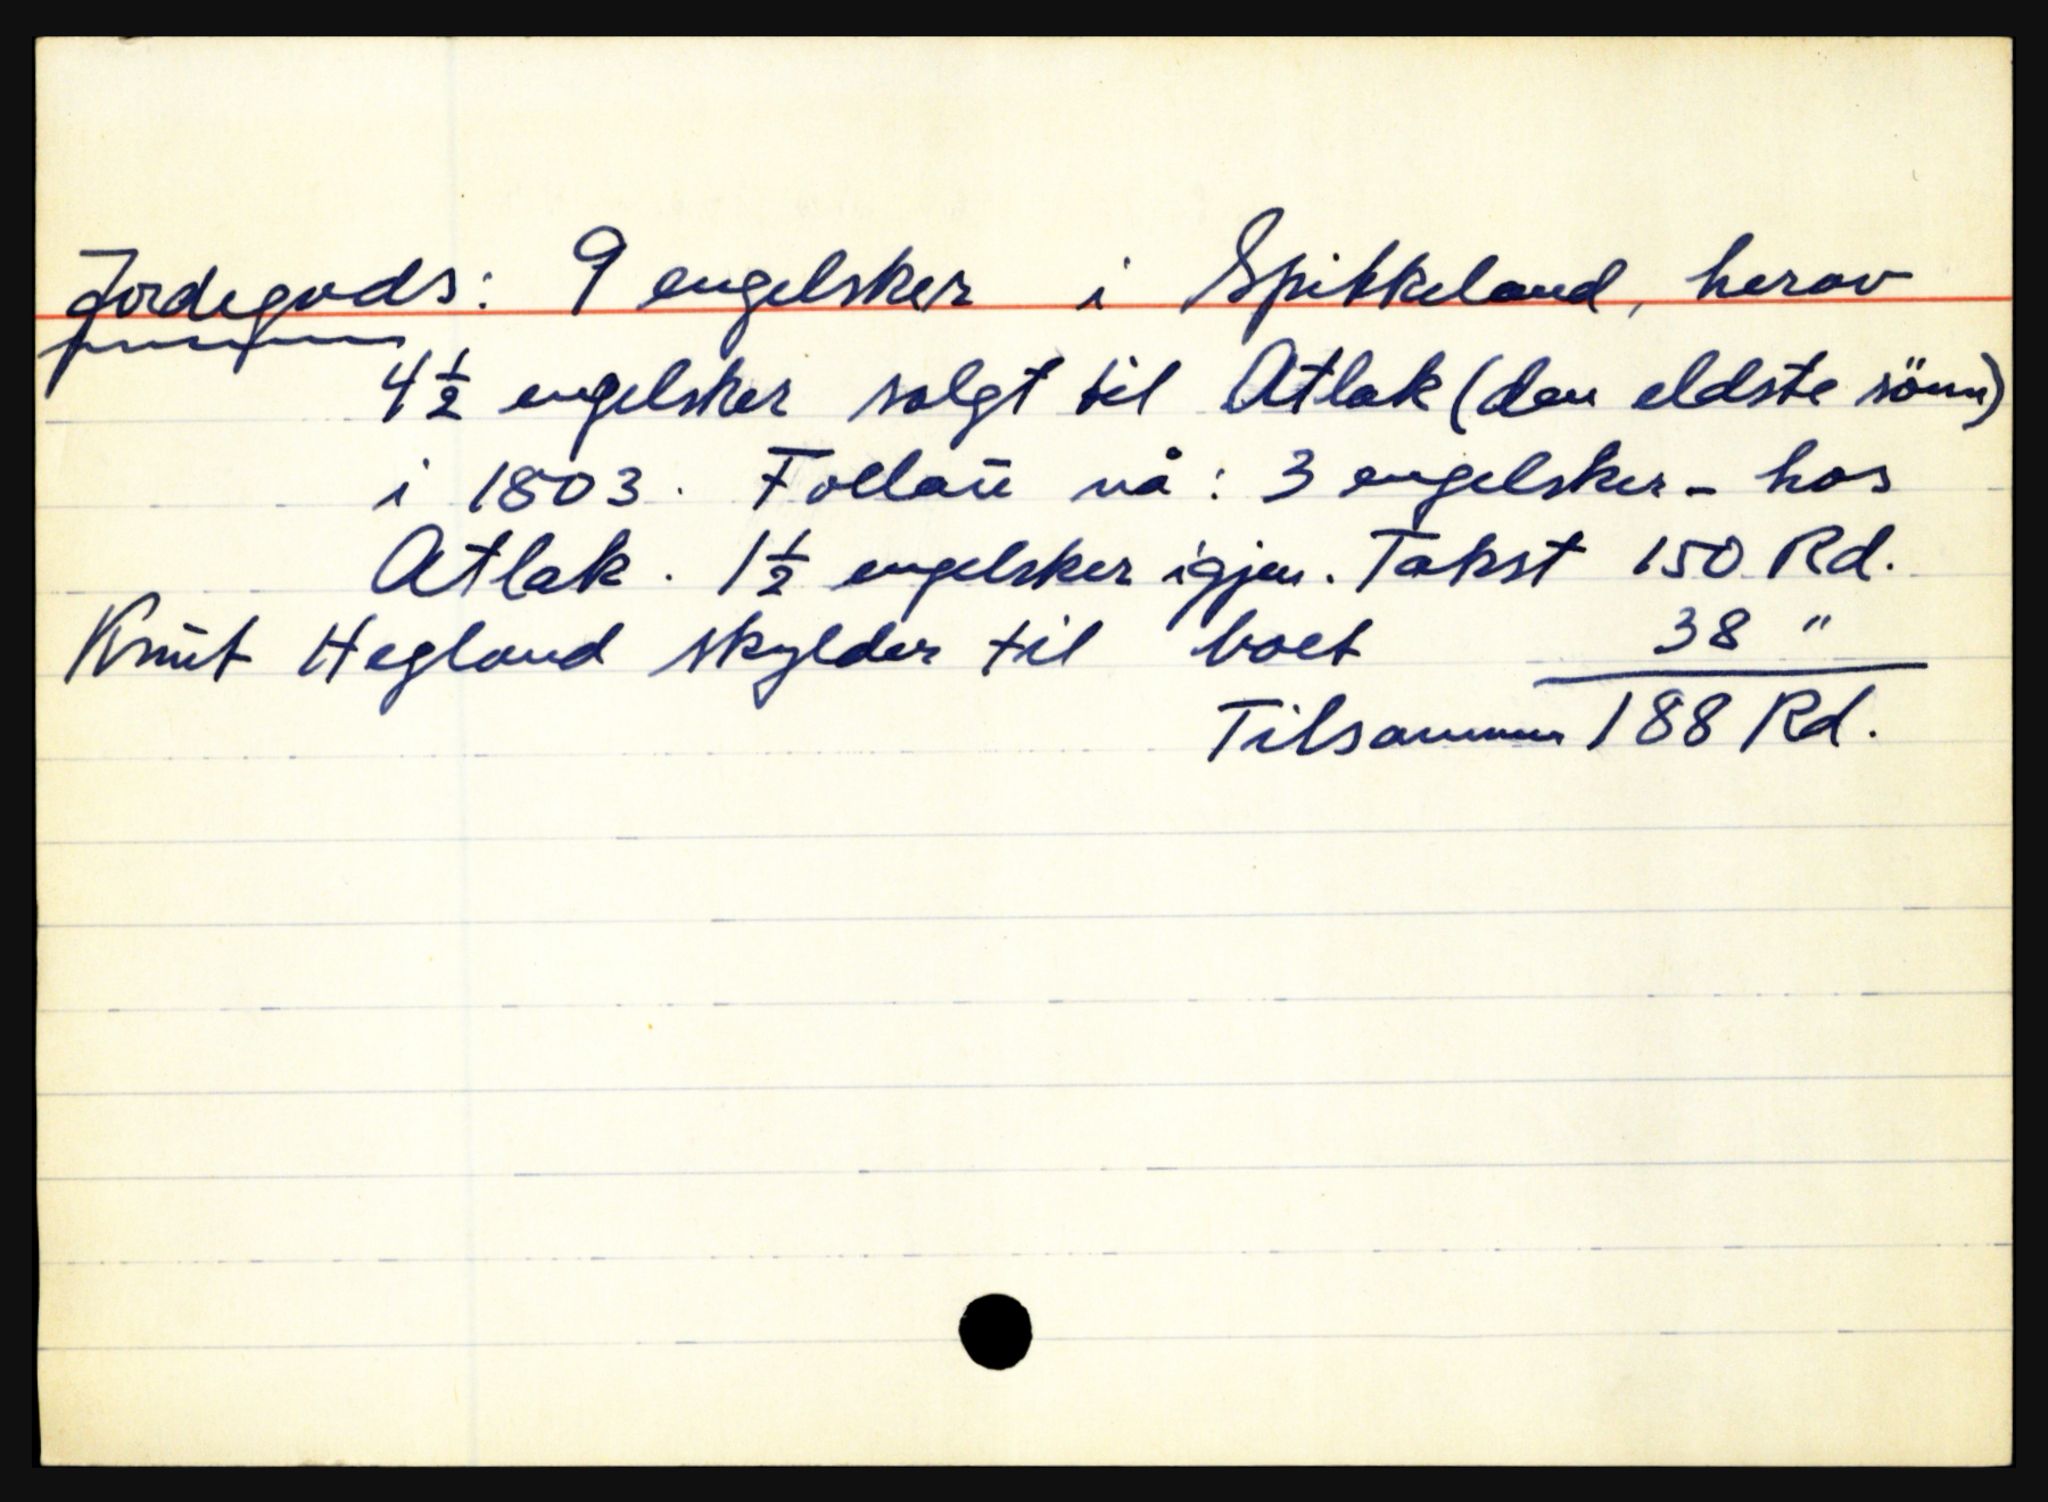 Jordegods: 9 engelsker i Spikkeland, herav
4½ engelsker solgt til Atlak (den eldste sönn)
i 1803. Follaŭ nå: 3 engelsker - hos
Atlak. 1½ engelsker igjen. Takst 150 Rd.
Knŭt Hegland skylder til boet 38 "
Tilsammen 188 Rd.